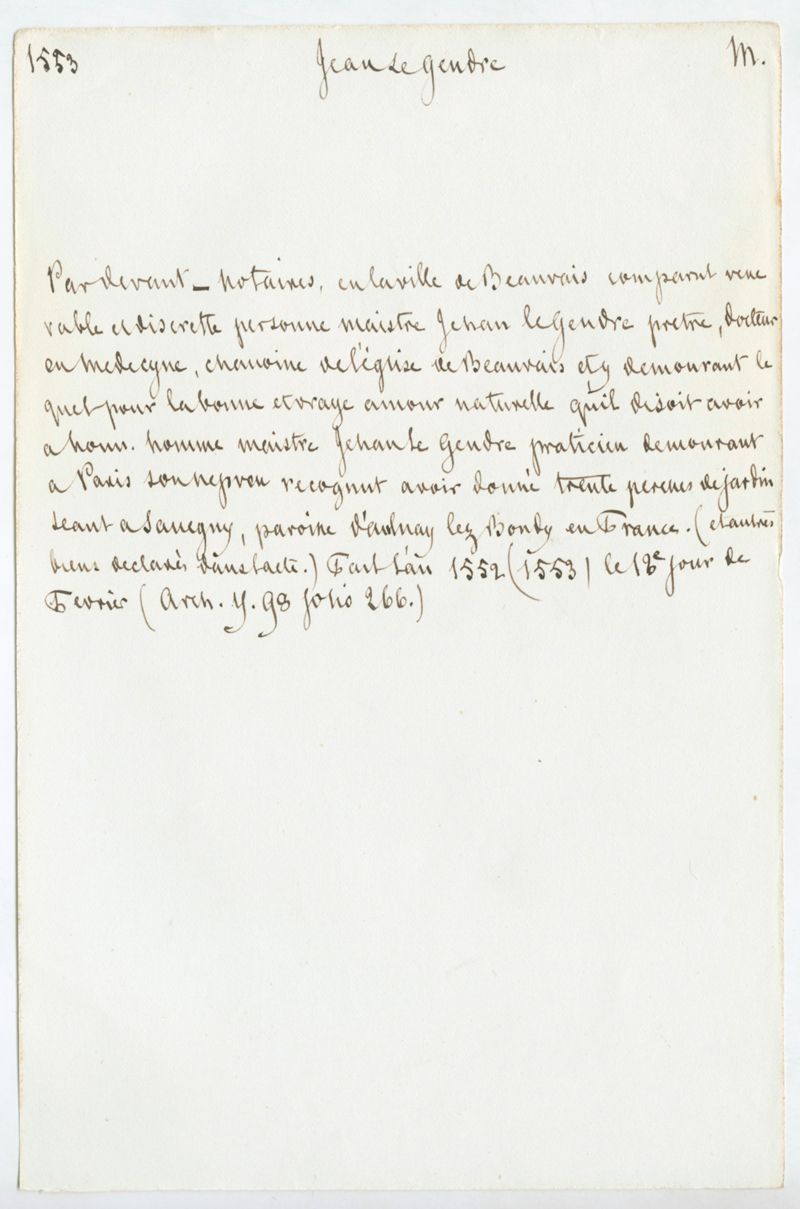 1553 Jean Le Gendre M.
Par devant _ notaires, en la ville de Beauvais comparut vene
rable et discrette personne maistre Jehan le Gendre pretre, docteur
en medecyne, chanoine de l'église de Beauvais et y demourant le
quel pour la bonne et vraye amour naturelle qu'il disoit avoir
a honn. homme maistre Jehan Le Gendre praticien demourant
a Paris son nepveu recognut avoir donné trente perches de jardin
seant a Savegny, paroisse d'aulnay lez Bondy en France. (et autres
biens declarés dans l'acte.) Fait l'an 1552 (1553) le 18e jour de
Fevrier (Arch. Y. 98 folio 266.)